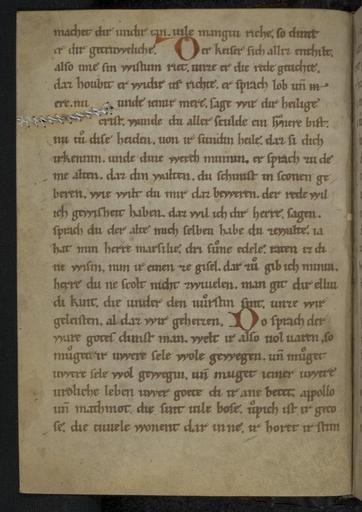 machet dir undir tan. uile mangiu riche, so dinet
er dir getruweliche. Der keiser sich aller enthilt,
also ime sin wistum riet, unze er die rede gedachte,
daz houbit er widir uf richte, er sprach lob uñ
ere, nu unde iemir mere, sage wir dir heilige
crist. wande du aller sculde ein sunere bist.
nu tů dise heiden, uon ir sundin heile, daz si dich
irkennin, unde dine werch minnin, er sprach zu de
me alten, daz din walten, du schinist in sconen ge
beren, wie wilt du mir daz beweren, der rede wil
ich gewisheit haben, daz wil ich dir herre, sagen,
sprach du der alte mich selben habe du zewalte, ia
hat min herre marsilie, dri sůne edele, raten er di
ne wisin, nim ir einen ze gisel, dar zů gib ich minin,
herre du ne scolt nicht zwiuelen, man git dir elliu
di kint, die under den uůrstin sint, unze wir
geleisten, al daz wir geheizen, Do sprach der
ware gotes dinist man, welt ir also uol uaren, so
můget ir iwere sele wole gewegen, uñ můget
iwere sele wol gewegin, uñ muget iemer iwere
uroliche leben iwer goete di ir ane betet, appollo
uñ machmot, die sint uile bose, ůpich ist ir geco
se, die tiuuele wonent dar inne, ir horet ir stim